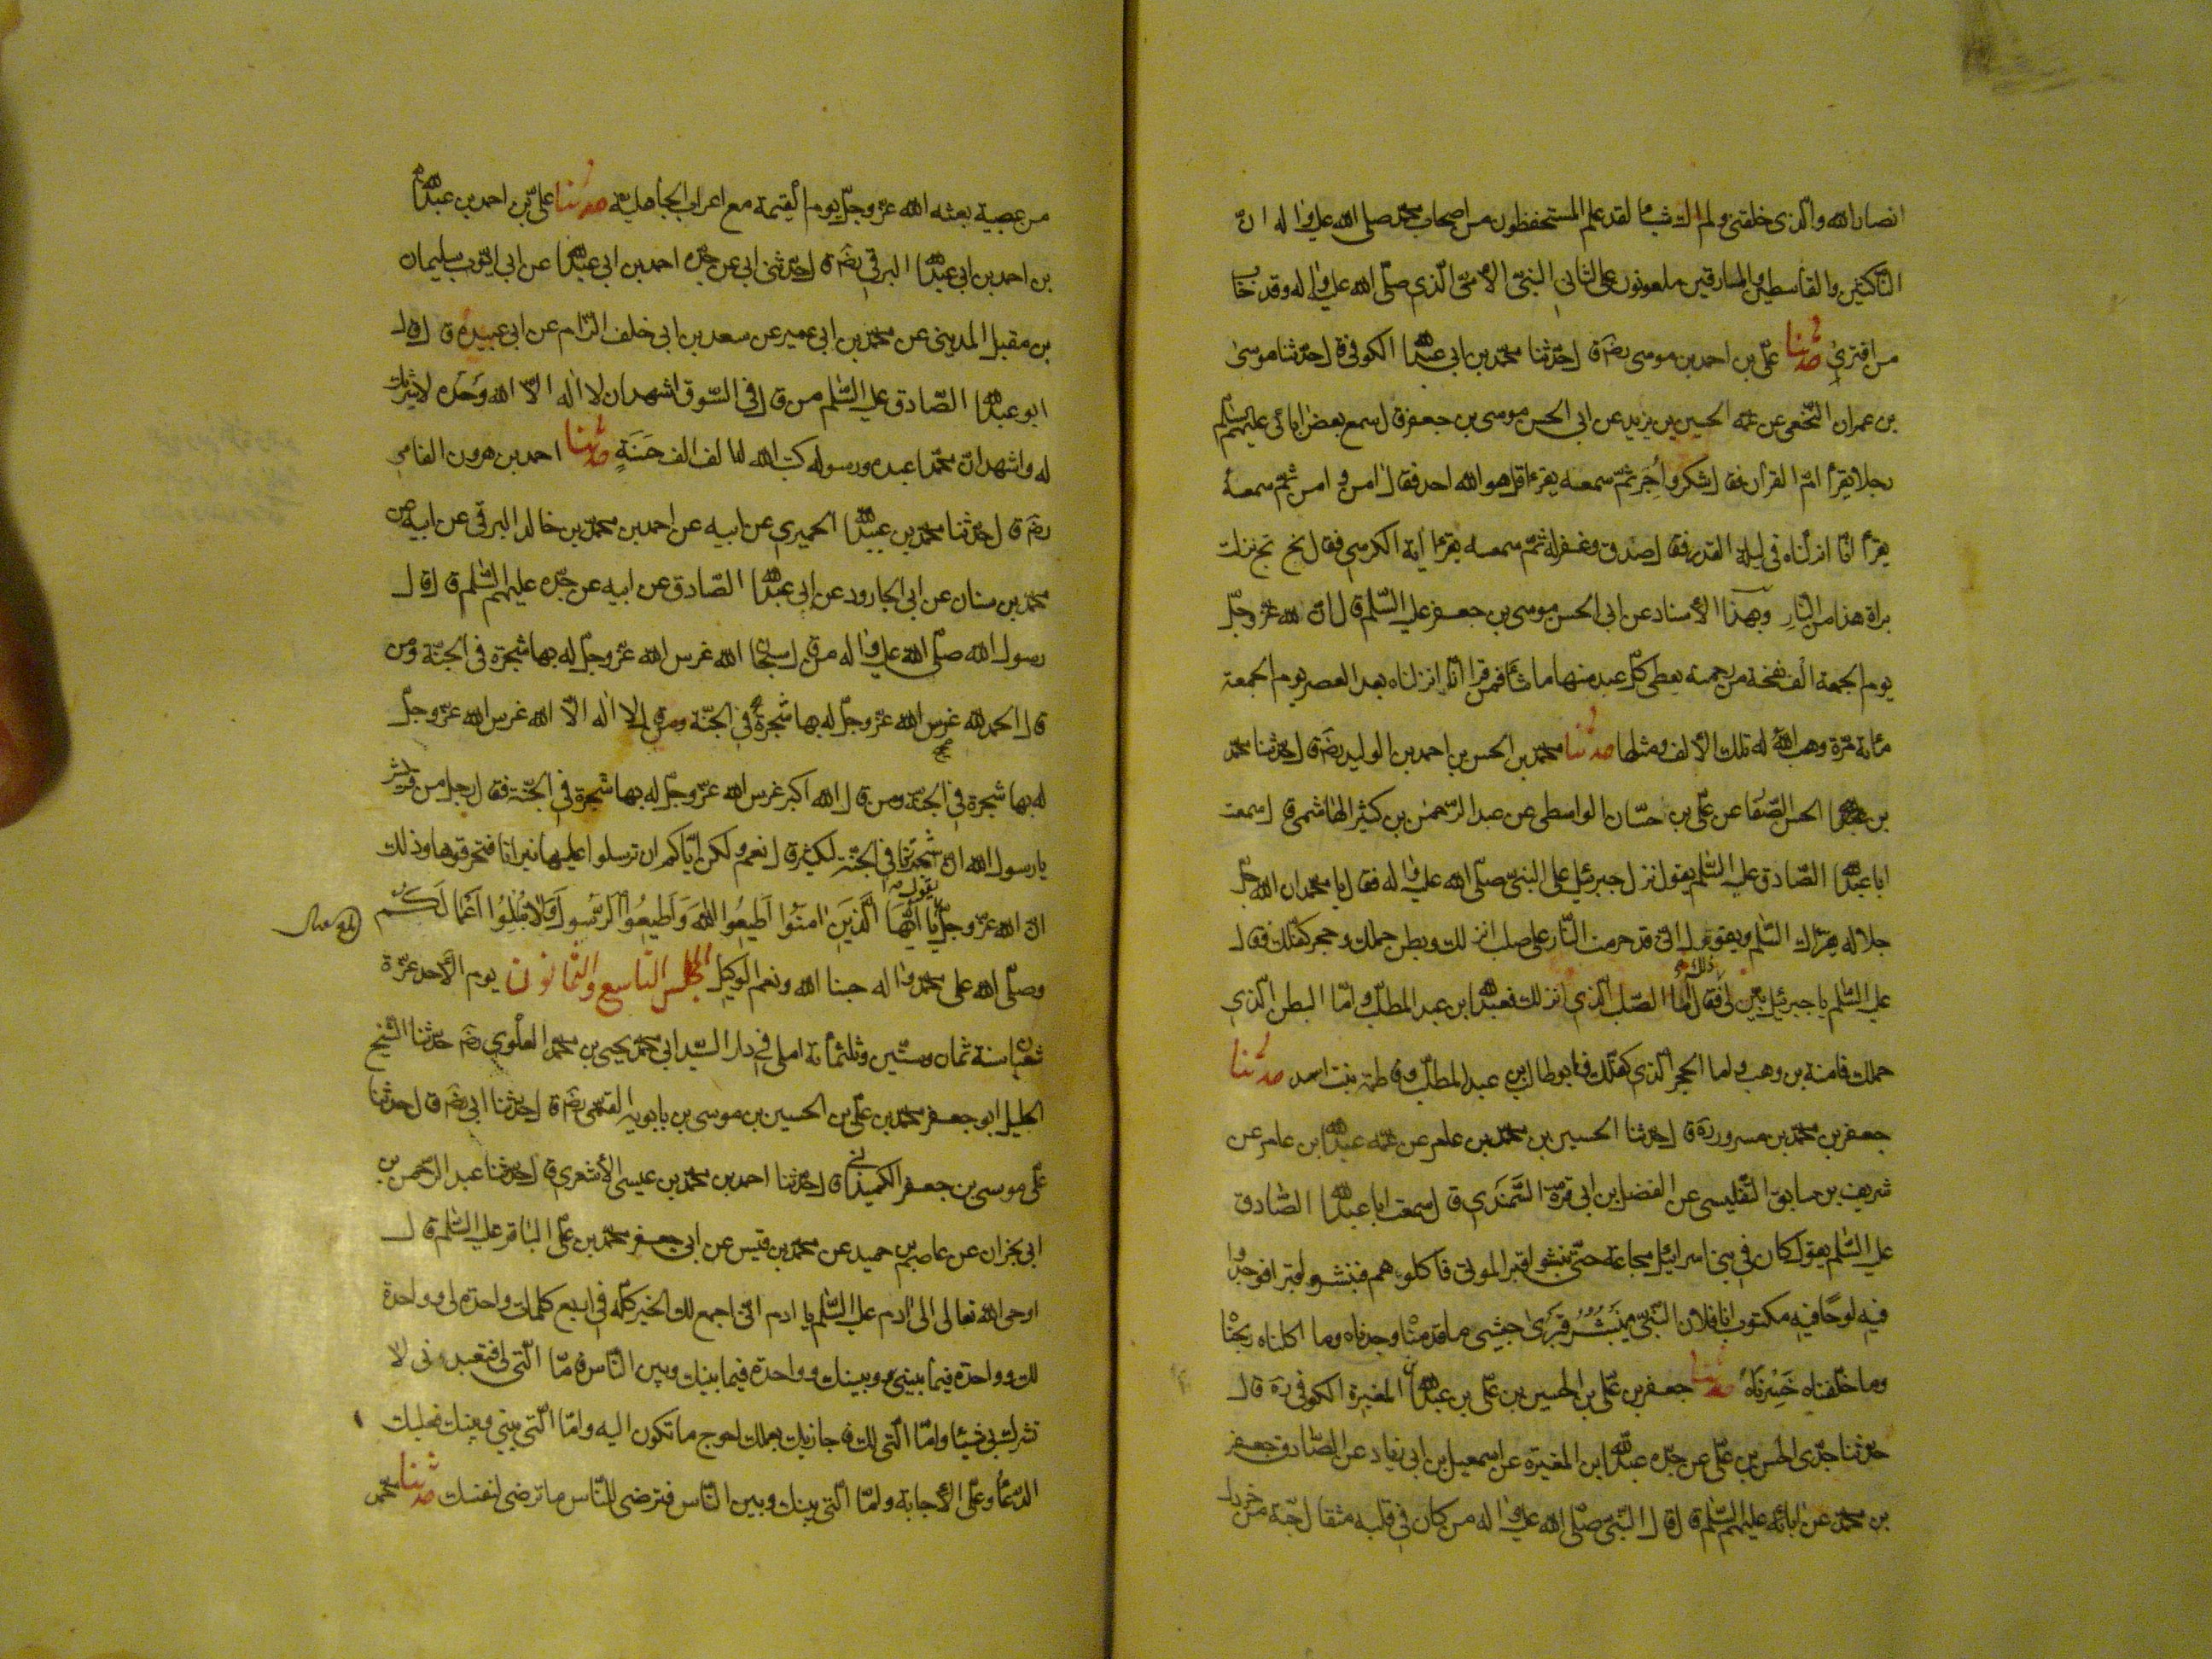 انصار الله والذى خلقنى ولم اك شيئا لقد علم المستحفظون من اصحاب محمد صلى الله عليه واله ان
الناكثين والقاسطين والمارقين ملعونون على لسان النبى الامى الذى صلى الله عليه واله وقد خاب
من افترى حدثنا على بن احمد بن موسى رضه ق ل حدثنا محمد بن ابى عبدالله الكوفى ق ل حدثنا موسى
بن عمران النخعى عن عمه الحسين بن يزيد عن ابى الحسن موسى بن جعفر ق ل سمع بعض ابائى عليهم السلم
رجلا يقرا ام القران فقال شكر واجر ثم سمعه يقرء قل هو الله احد فقال امن و امن ثم سمعه
يقرا انا انزلناه فى ليلة القدر فقال صدق وغفر له ثم سمعه يقرء اية الكرسى فقال بخ بخ نزلت
براة هذا من النار وبهذا الاسناد عن ابى الحسن موسى بن جعفر عليه السلم ق ل ان لله عز وجل
يوم الجمعة الف نفحة من رحمته يعطى كل عبد منها ما شا فمن قرا انا انزلناه بعد العصر يوم الجمعة
مائة مرة وهب الله له تلك الالف ومثلها حدثنا محمد بن الحسن بن احمد بن الوليد رضه ق ل حدثنا محمد
بن الحسن الصفا عن على بن حسان الواسطى عن عبد الرحمن بن كثير الهاشمى ق ل سمعت
ابا عبدالله الصادق عليه السلم يقول نزل جبرئيل على النبى صلى الله عليه واله فقال يا محمد ان الله جل
جلاله يقرئك السلم ويقول انى قد حرمت النار على صلب انزلك وبطن حملك وحجر كفلك فقال
عليه السلم يا جبرئيل بين لى ذلك فقال اما الصلب الذى انزلك فعبدالله ابن عبد المطلب واما البطن الذى
حملك فامنة بن وهب واما الحجر الذى كفلك فابو طالب بن عبد المطلب وفاطمة بنت اسد حدثنا
جعفر بن محمد بن مسرور ره ق ل حدثنا الحسين بن محمد بن عامر عن عمه عبدالله ابن عامر عن
شريف بن سابق التفليسى عن الفضل بن ابى قرة السمندى ق ل سمعت ابا عبدالله الصادق
عليه السلم يقول كان فى بنى اسرائيل مجاعة حتى نبشوا قبر الموتى فاكلوهم فنبشوا قبرا فوجدوا
فيه لوحا فيه مكتوب انا فلان النبى ينبش قبرى حبشى ما قدمنا وجدناه وما اكلناه ربحنا
وما خلفناه خسرناه حدثنا جعفر بن على بن الحسين بن على بن عبدالله المغيرة الكوفى ره قال
حدثنا جدى الحسن بن على عن جده عبدالله ابن المغيرة عن اسمعيل بن ابى زياد عن الصادق جعفر
بن محمد عن ابائه عليهم السلم ق ل ق ل النبى صلى الله عليه واله من كان فى قلبه مثقال حبة من خردل
من عصبية بعثه الله عز وجل يوم القيمة مع اعراب الجاهلية حدثنا على بن احمد بن عبدالله
بن احمد بن ابى عبدالله البرقى رضه ق ل حدثنى ابى عن جده احمد بن ابى عبدالله عن ابى ايوب سليمان
بن مقبل المدينى عن محمد بن ابى عمير عن سعد بن ابى خلف الزام عن ابى عبيدة ق ل ق ل
ابو عبدالله الصادق عليه السلم من ق ل فى السوق اشهد ان لا اله الا الله وحده لا شريك
له واشهد ان محمدا عبده ورسوله كتب الله له الف الف حسنة حدثنا احمد بن هرون الفامى
رضه ق ل حدثنا محمد بن عبدالله الحميرى عن ابيه عن احمد بن محمد بن خالد البرقى عن ابيه عن
محمد بن سنان عن ابى الجارود عن ابى عبدالله الصادق عن ابيه عن جده عليهم السلم ق ل ق ل
رسول الله صلى الله عليه واله من ق ل سبحان الله غرس الله عز وجل له بها شجرة فى الجنة ومن
ق ل الحمد لله غرس الله عز وجل له بها شجرة فى الجنة ومن ق ل لا اله الا الله غرس الله عز وجل
له بها شجرة فى الجنة ومن ق ل الله اكبر غرس الله عز وجل له بها شجرة فى الجنة فقال رجل من قريش
يا رسول الله ان شجرنا فى الجنة لكثير ق ل نعم ولكن اياكم ان ترسلوا عليها نيرانا فتحرقوها وذلك
ان الله عز وجل يقول يا ايها الذين امنوا اطيعوا الله واطيعوا الرسول ولا تبطلوا اعمالكم
وصلى الله على محمد واله حسبنا الله ونعم الوكيل المجلس التاسع والثمانون يوم الاحد غرة
شعبان سنة ثمان وستين وثلثمائة املى فى دار السيد ابى محمد يحيى بن محمد العلوى رضه حدثنا الشيخ
الجليل ابو جعفر محمد بن على بن الحسين بن موسى بن بابويه القمى رضه ق ل حدثنا ابى رضه ق ل حدثنا
على موسى بن جعفر الكميذانى ق ل حدثنا احمد بن محمد بن عيسى الاشعرى ق ل حدثنا عبد الرحمن بن
ابى نجران عن عاصم بن حميد عن محمد بن قيس عن ابى جعفر محمد بن على الباقر عليه السلم ق ل
اوحى الله تعالى الى ادم عليه السلم يا ادم انى اجمع لك الخير كله فى اربع كلمات واحدة لى وواحدة
لك وواحدة فيما بينى وبينك وواحدة فيما بينك وبين الناس فاما التى لى فتعبدونى لا
تشرك بى شيئا واما التى لك فاجازيك بعملك احوج ما تكون اليه واما التى بينى وبينك فعليك
الدعا وعلى الاجابة واما التى بينك وبين الناس فترضى للناس ما ترضى لنفسك حدثنا محمد